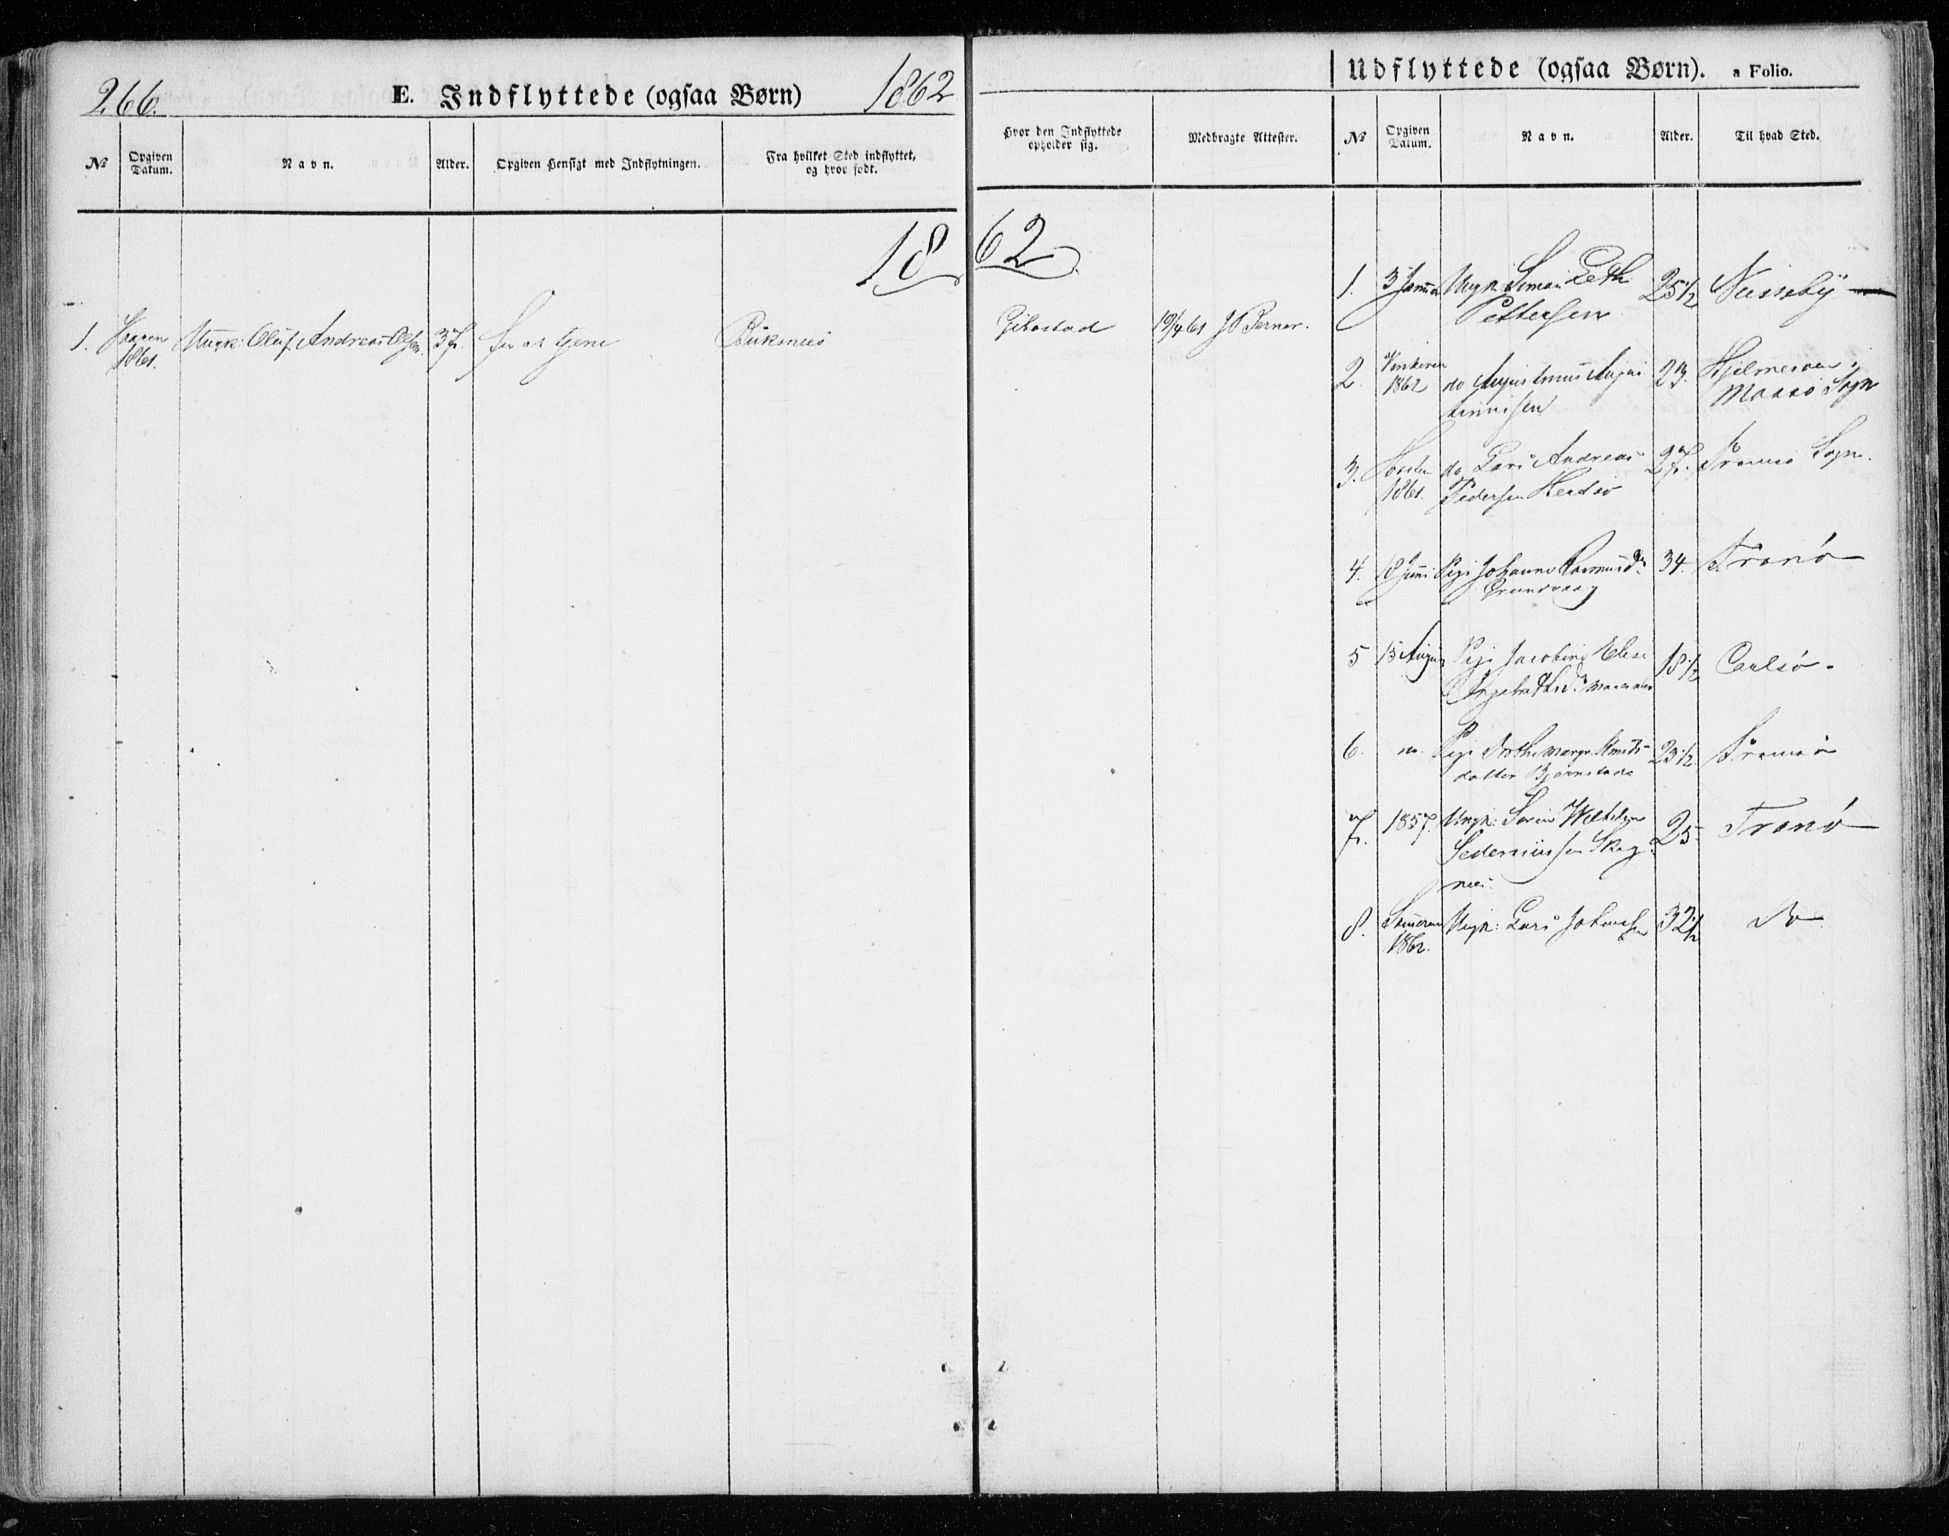 266.
E. Indflyttede (ogsaa Børn)
1862
№
Opgiven Datum.
Navn.
Alder.
Opgiven Hensigt med Indflytningen.
Fra hvilket Sted indflyttet, og hvor født.
Hvor den Indflyttede opholder sig.
Medbragte Attester.
Udflyttede (ogsaa Børn). a Folio.
№
Opgiven Datum.
Navn.
Alder.
Til hvad Sted.
1862
1. 1861. Ungk: Oluf Andreas Olsen 37. for at tjene Buksnes Gibostad 19/4 61
1. 3 Januar Ungk: Simon Peth 25 1/2 Nesseby
Pettersen
2. Vinteren 1862 do Augustinus Augus 23. Hjelmesoe i
tinusen Maasø Sogn
3. Høsten 1861. do Lars Andreas 27. Tromsø Sogn.
Pedersen
4. 18 Juni Pige Johanna Rasmusdr 34. Tranø
Grunnvaag
5 15 August Pige Jacobine Elise 18 1/2 Carlsø.
6. Pige Dorthe Margr. Knuds- 23 1/2 Tromsø
datter Bjørnstad
7. 1857. Ungk: Søren 25 Tranø
Skog
nes.
8. Sommeren 1862. Ungk: Lars Johansen 32 1/2 do